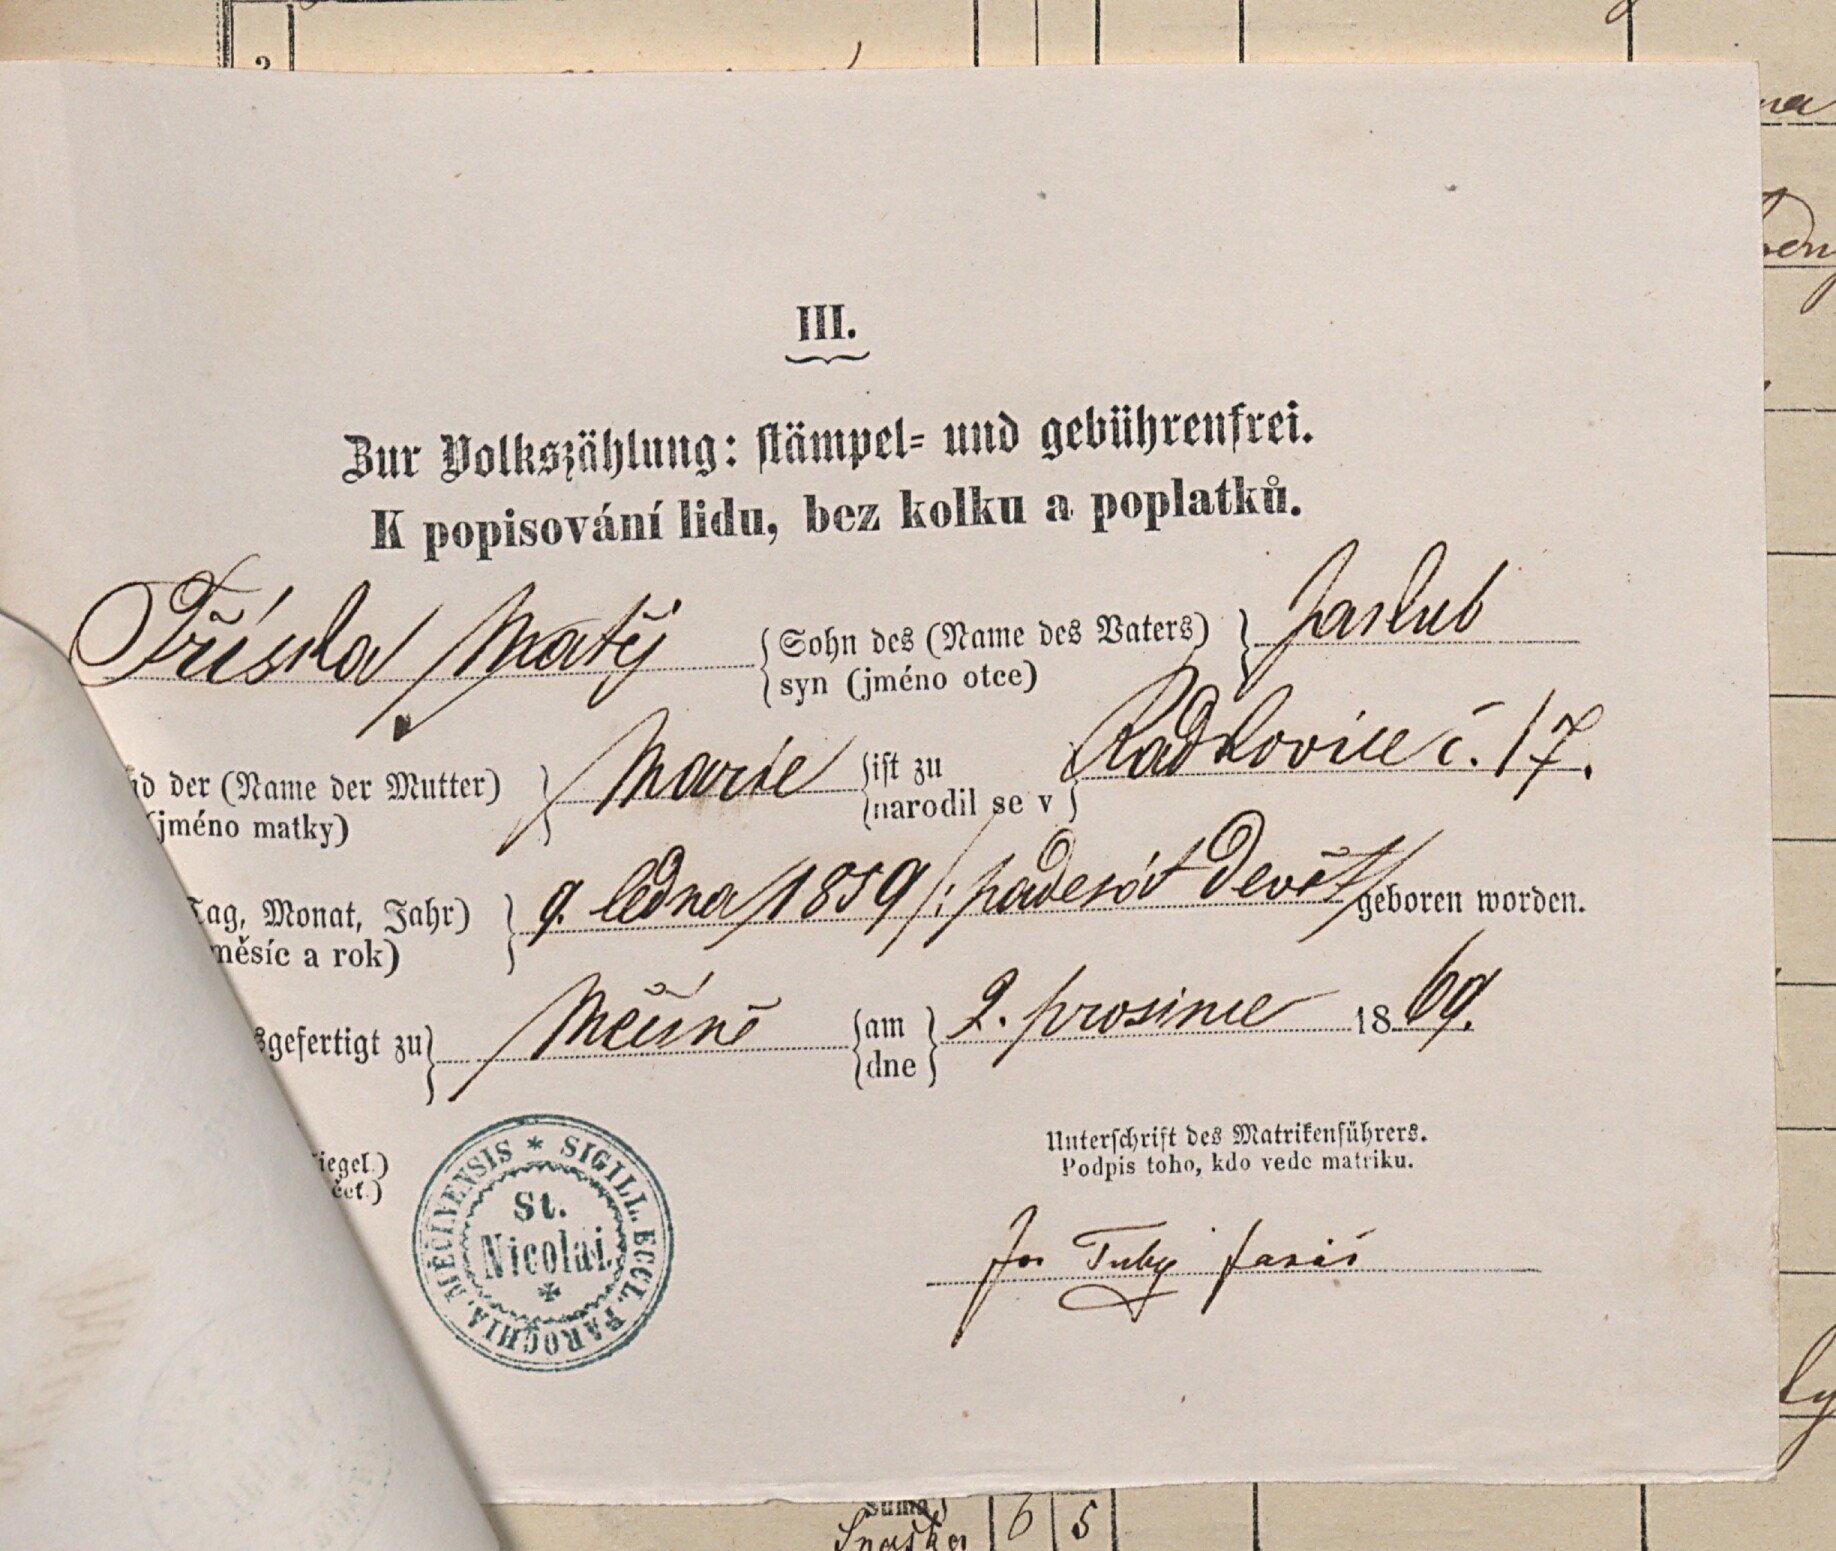 III.
Zur Volkszählung: stämpel- und gebührenfrei.
K popisování lidu, bez kolku a poplatků.
Tříska Matěj { Sohn des (Name des Vaters) } Jakub
syn (jméno otce)
der (Name der Mutter) } Marie { ist zu Radkovice č. 17.
(jméno matky) narodil se v
Tag, Monat, Jahr) } 9. ledna 1859 /: padesát devět geboren worden.
měsíc a rok)
sgefertigt zu } Měčíně { am } 2. prosince 1869.
dne
iegel.)
čeť.)
SIGILL. ECCL. PAROCHIA. MĚČINENSIS
St.
Nicolai.
Unterschrift des Matrikenführers.
Podpis toho, kdo vede matriku.
Jos Tuhý farář
6 5